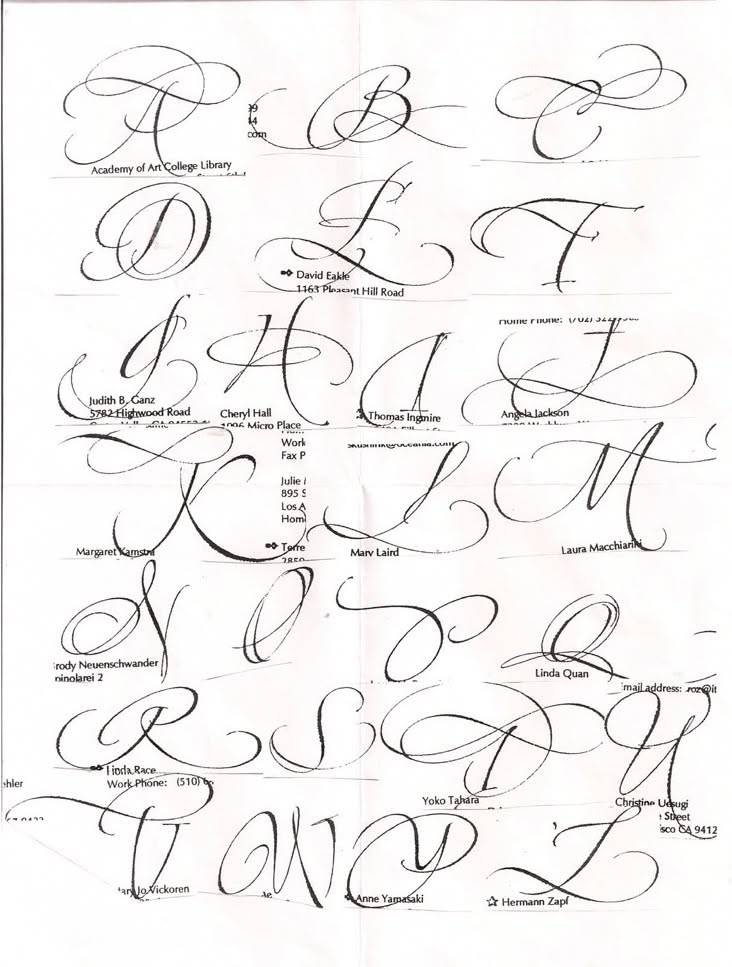 A B C
Academy of Art College Library
com
D E F
David Eakle
1163 Pleasant Hill Road
G H I J
Home Phone: (702)
Judith B. Ganz
5782 Highwood Road
Cheryl Hall
1096 Micro Place
Thomas Ingmire
Angela Jackson
K L M
Work
Fax P
skushnik@oceania.com
Julie
895 S
Los A
Hom
Margaret Kamstra
Terre
2850
Mary Laird
Laura Macchiarini
N O P Q
rody Neuenschwander
ninolarei 2
Linda Quan
mail address: roz@it
R S T U
Linda Race
Work Phone: (510)
ehler
Yoko Tahara
Christine Uesugi
Street
isco CA 9412
V W Y Z
ary Jo Vickoren
Anne Yamasaki
Hermann Zapf